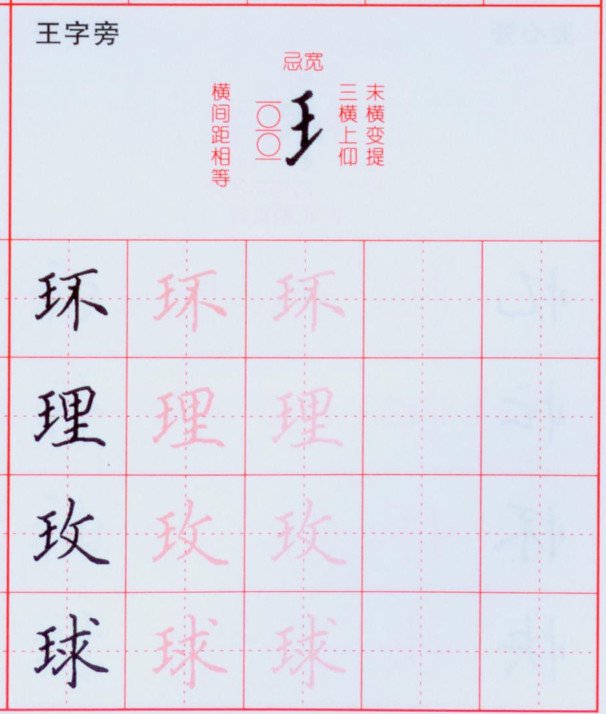 王字旁
忌宽
横间距相等
三横上仰
末横变提
环 环 环
理 理 理
玫 玫 玫
球 球 球